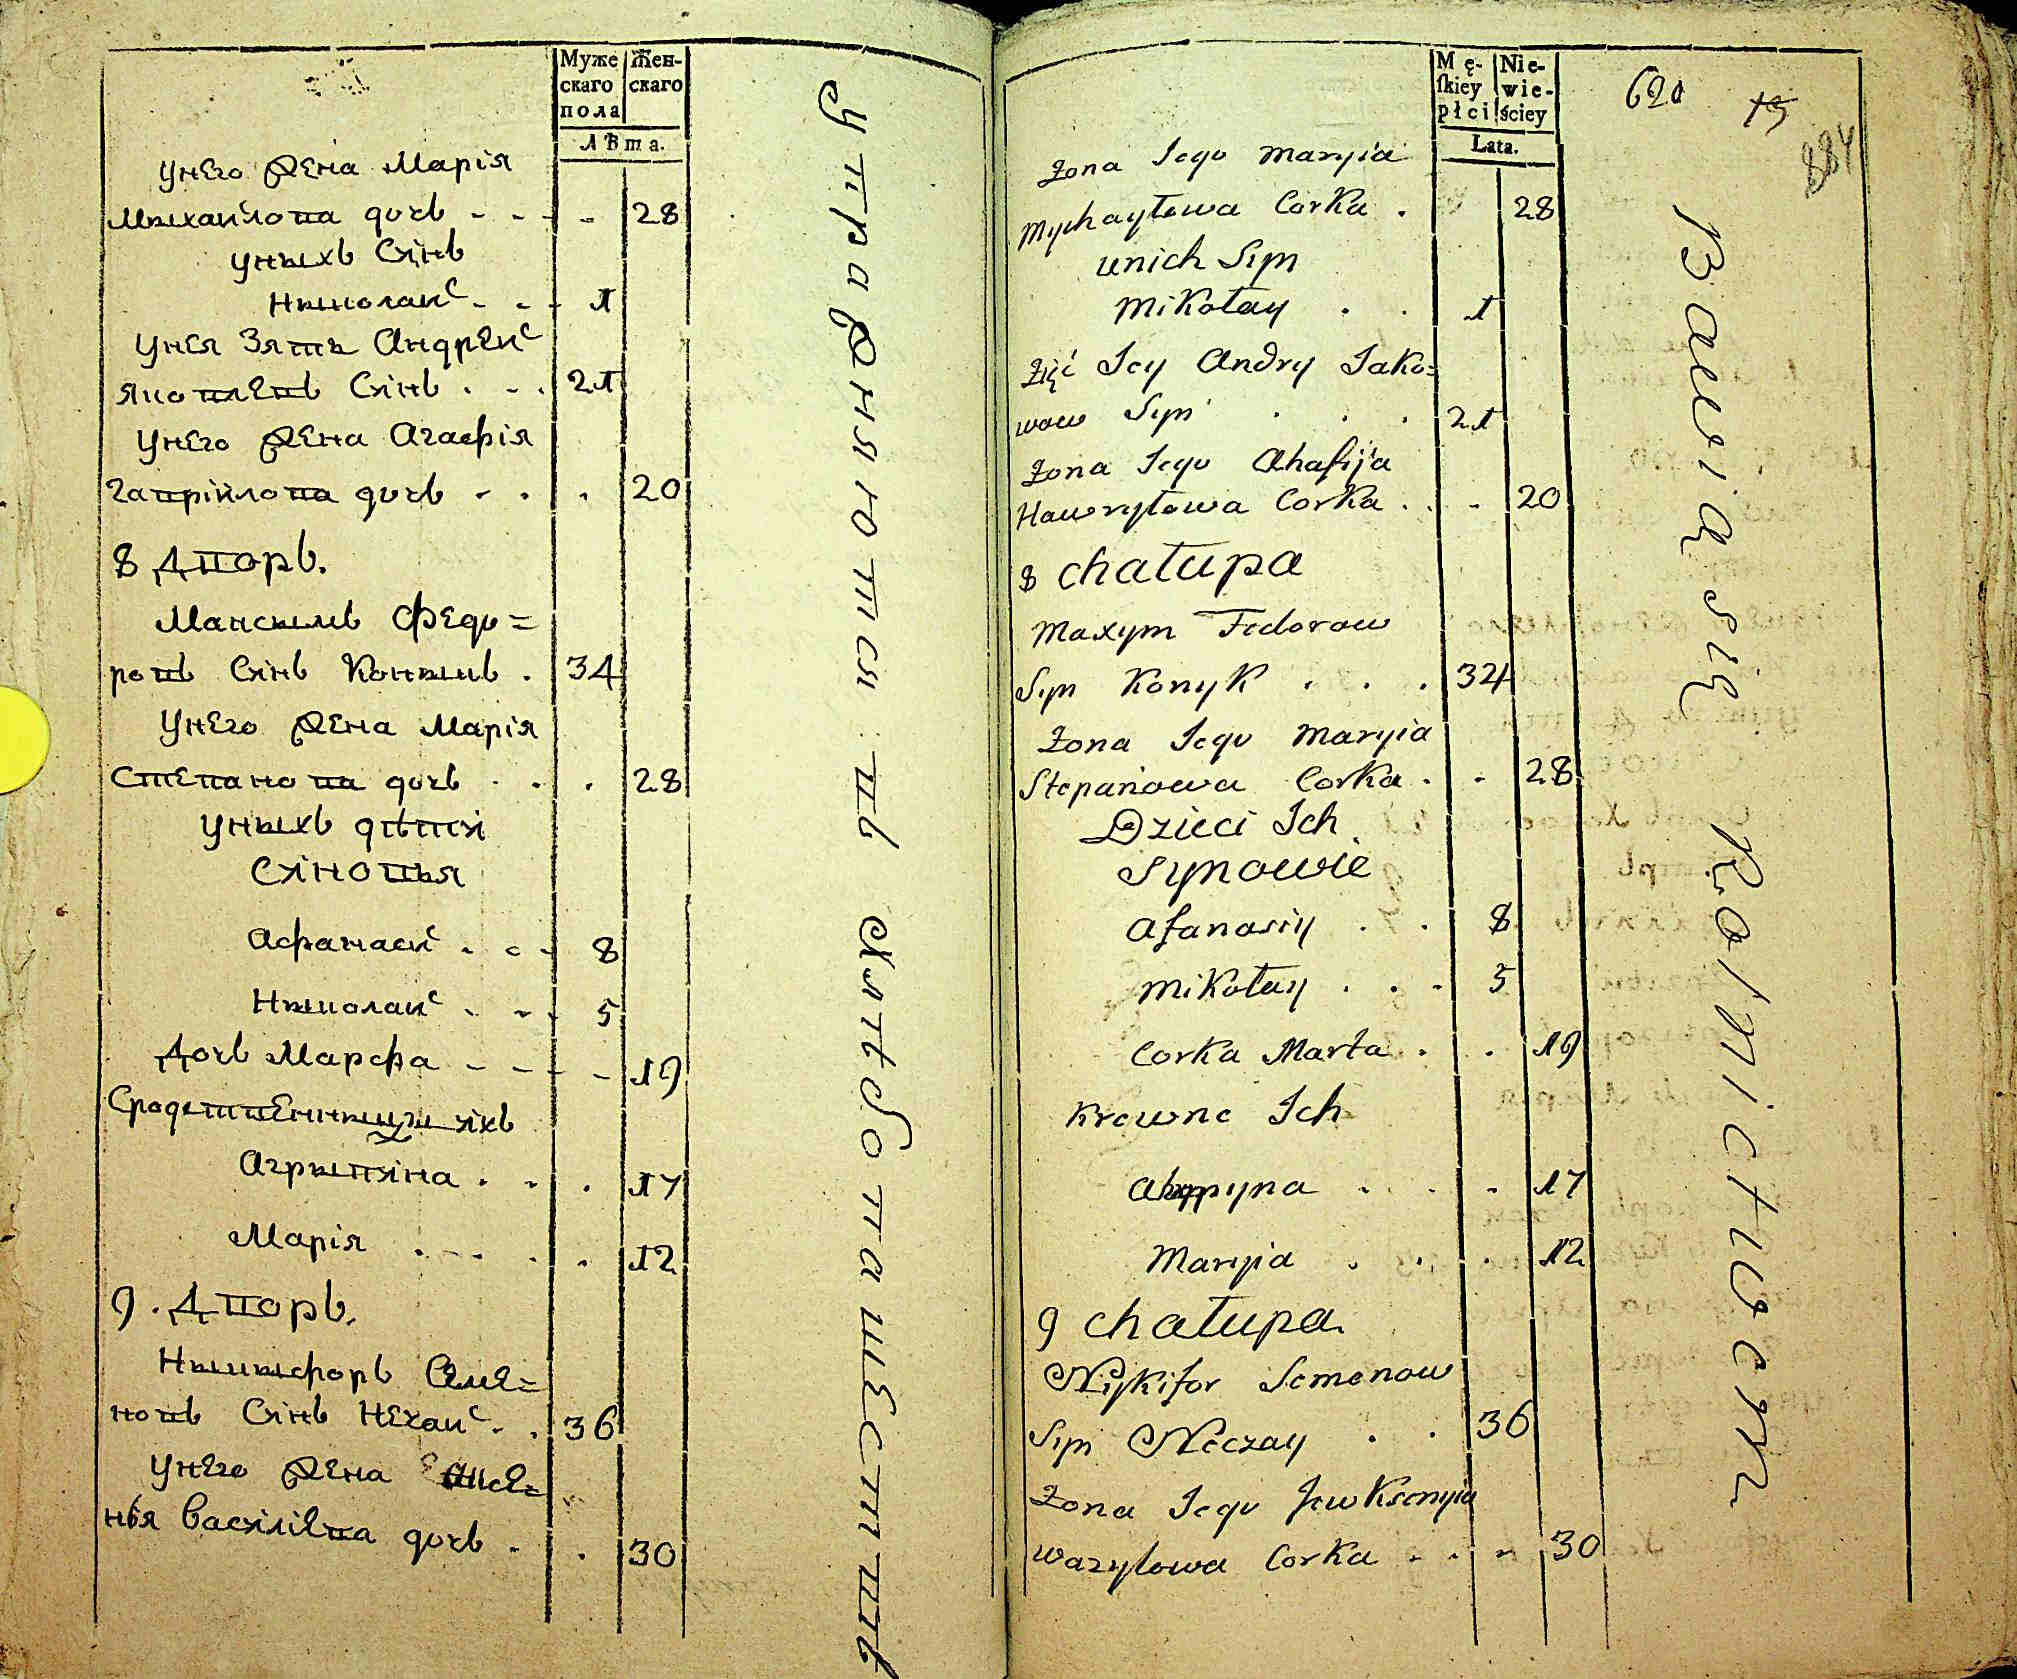 Муже скаго пола
Жен- скаго
Лѣта.
Унего Жена Марія
Михайлова дочь - - - - 28
Унихъ Синъ
Николай - - - 1
Унея Зять Андрей
Яковлевъ Синъ . - . 21
Унего Жена Агафія
Гаврійлова дочь - . . 20
8 Дворъ.
Максимъ Федо=
ровъ Синъ Коникъ . 34
Унего Жена Марія
Степанова дочь . . . 28
Унихъ дѣтій
Синовья
Афанасій . - - 8
Николай . - - 5
Дочь Марфа - - - - 19
Сродственници ихъ
Агрипина . - . 17
Марія . - - . . 12
9. Дворъ.
Никифоръ Семе=
новъ Синъ Нечай - . 36
Унего Жена Евксе=
нія Василіева дочь . . 30
упражняются въ хлѣбопашествѣ
Mę- ſkiey płci
Nie- wie- ściey
Lata.
620
13
884
Żona Jego Maryia
Mychayłowa Corka . 28
unich Syn
Mikołay . . 1
Zięć Jey Andry Jako=
wow Syn . . . 21
Żona Jego Ahafija
Hawryłowa Corka . . - 20
8 chałupa
Maxym Fedorow
Syn Konyk . . . 34
Żona Jego Maryia
Stepanowa Corka . - 28
Dzieci Ich
Synowie
Afanasiy . . 8
Mikołay . . - 5
Corka Marta . . 19
Krewne Ich
Ahrypyna . . - 17
Maryia . . . 12
9 chałupa.
Nykifor Semenow
Syn Neczay . . 36
Żona Jego Jewksenyia
Wazylowa Corka . . - 30
Bawią się Rolnictwem